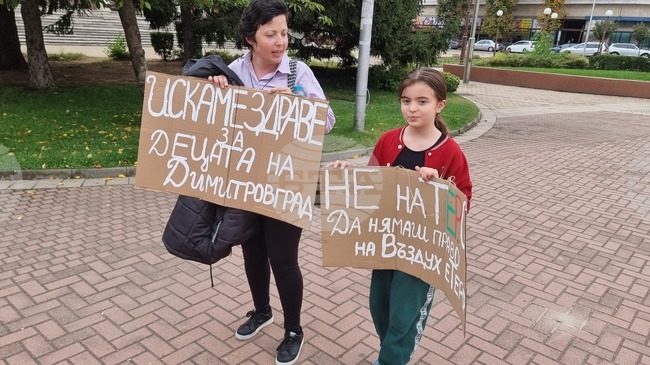 ИСКАМЕ ЗДРАВЕ
ЗА
ДЕЦАТА НА
ДИМИТРОВГРАД
НЕ НА ТЕЦ
ДА НЯМАШ ПРАВО
НА ВЪЗДУХ Е